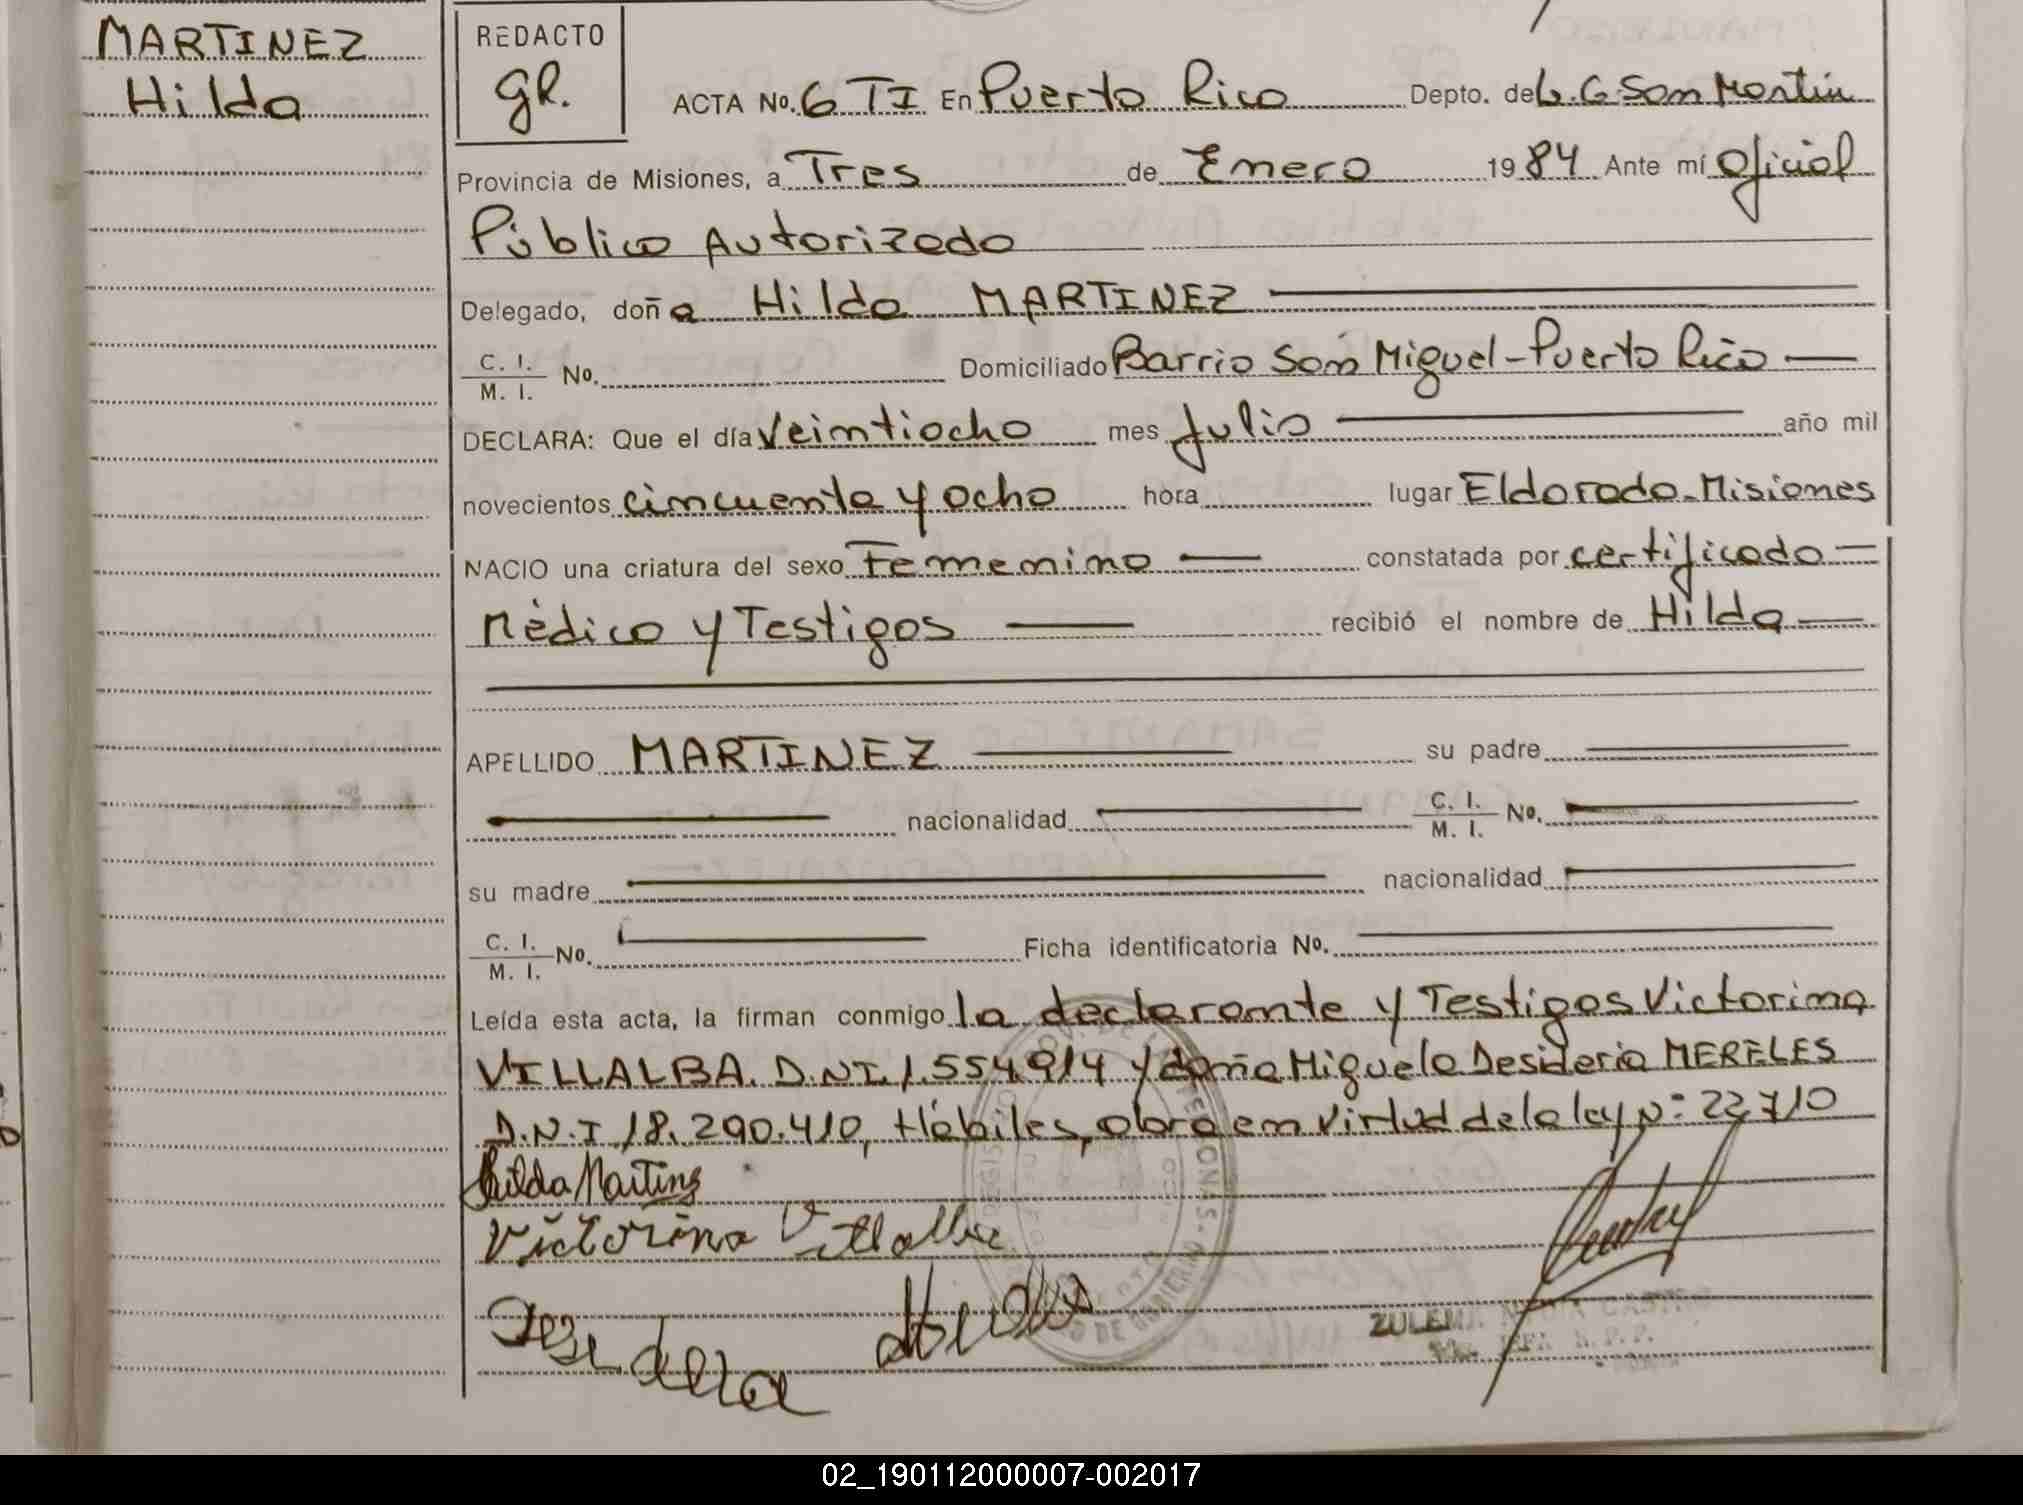 MARTINEZ
Hilda
REDACTO
GR.
ACTA No. 6 TI En Puerto Rico Depto. de L.G San Martin
Provincia de Misiones, a Tres de Enero 1984 Ante mí Oficial
Público Autorizado
Delegado, doña Hilda MARTINEZ
C. I. / M. I. No. Domiciliado Barrio San Miguel - Puerto Rico
DECLARA: Que el día veintiocho mes Julio año mil
novecientos cincuenta y ocho hora lugar Eldorado - Misiones
NACIO una criatura del sexo Femenino constatada por certificado
Médico y Testigos recibió el nombre de Hilda
APELLIDO MARTINEZ su padre
nacionalidad C. I. / M. I. No.
su madre nacionalidad
C. I. / M. I. No. Ficha identificatoria No.
Leída esta acta, la firman conmigo la declarante y Testigos Victorina
VILLALBA. D.N.I. 1.554.914 y doña Miguela Desideria MERELES
D.N.I 18.290.410, Hábiles, obra en virtud de la ley Nº: 22710
Hilda Martines
Victorina Villalba
ZULEMA
02_190112000007-002017